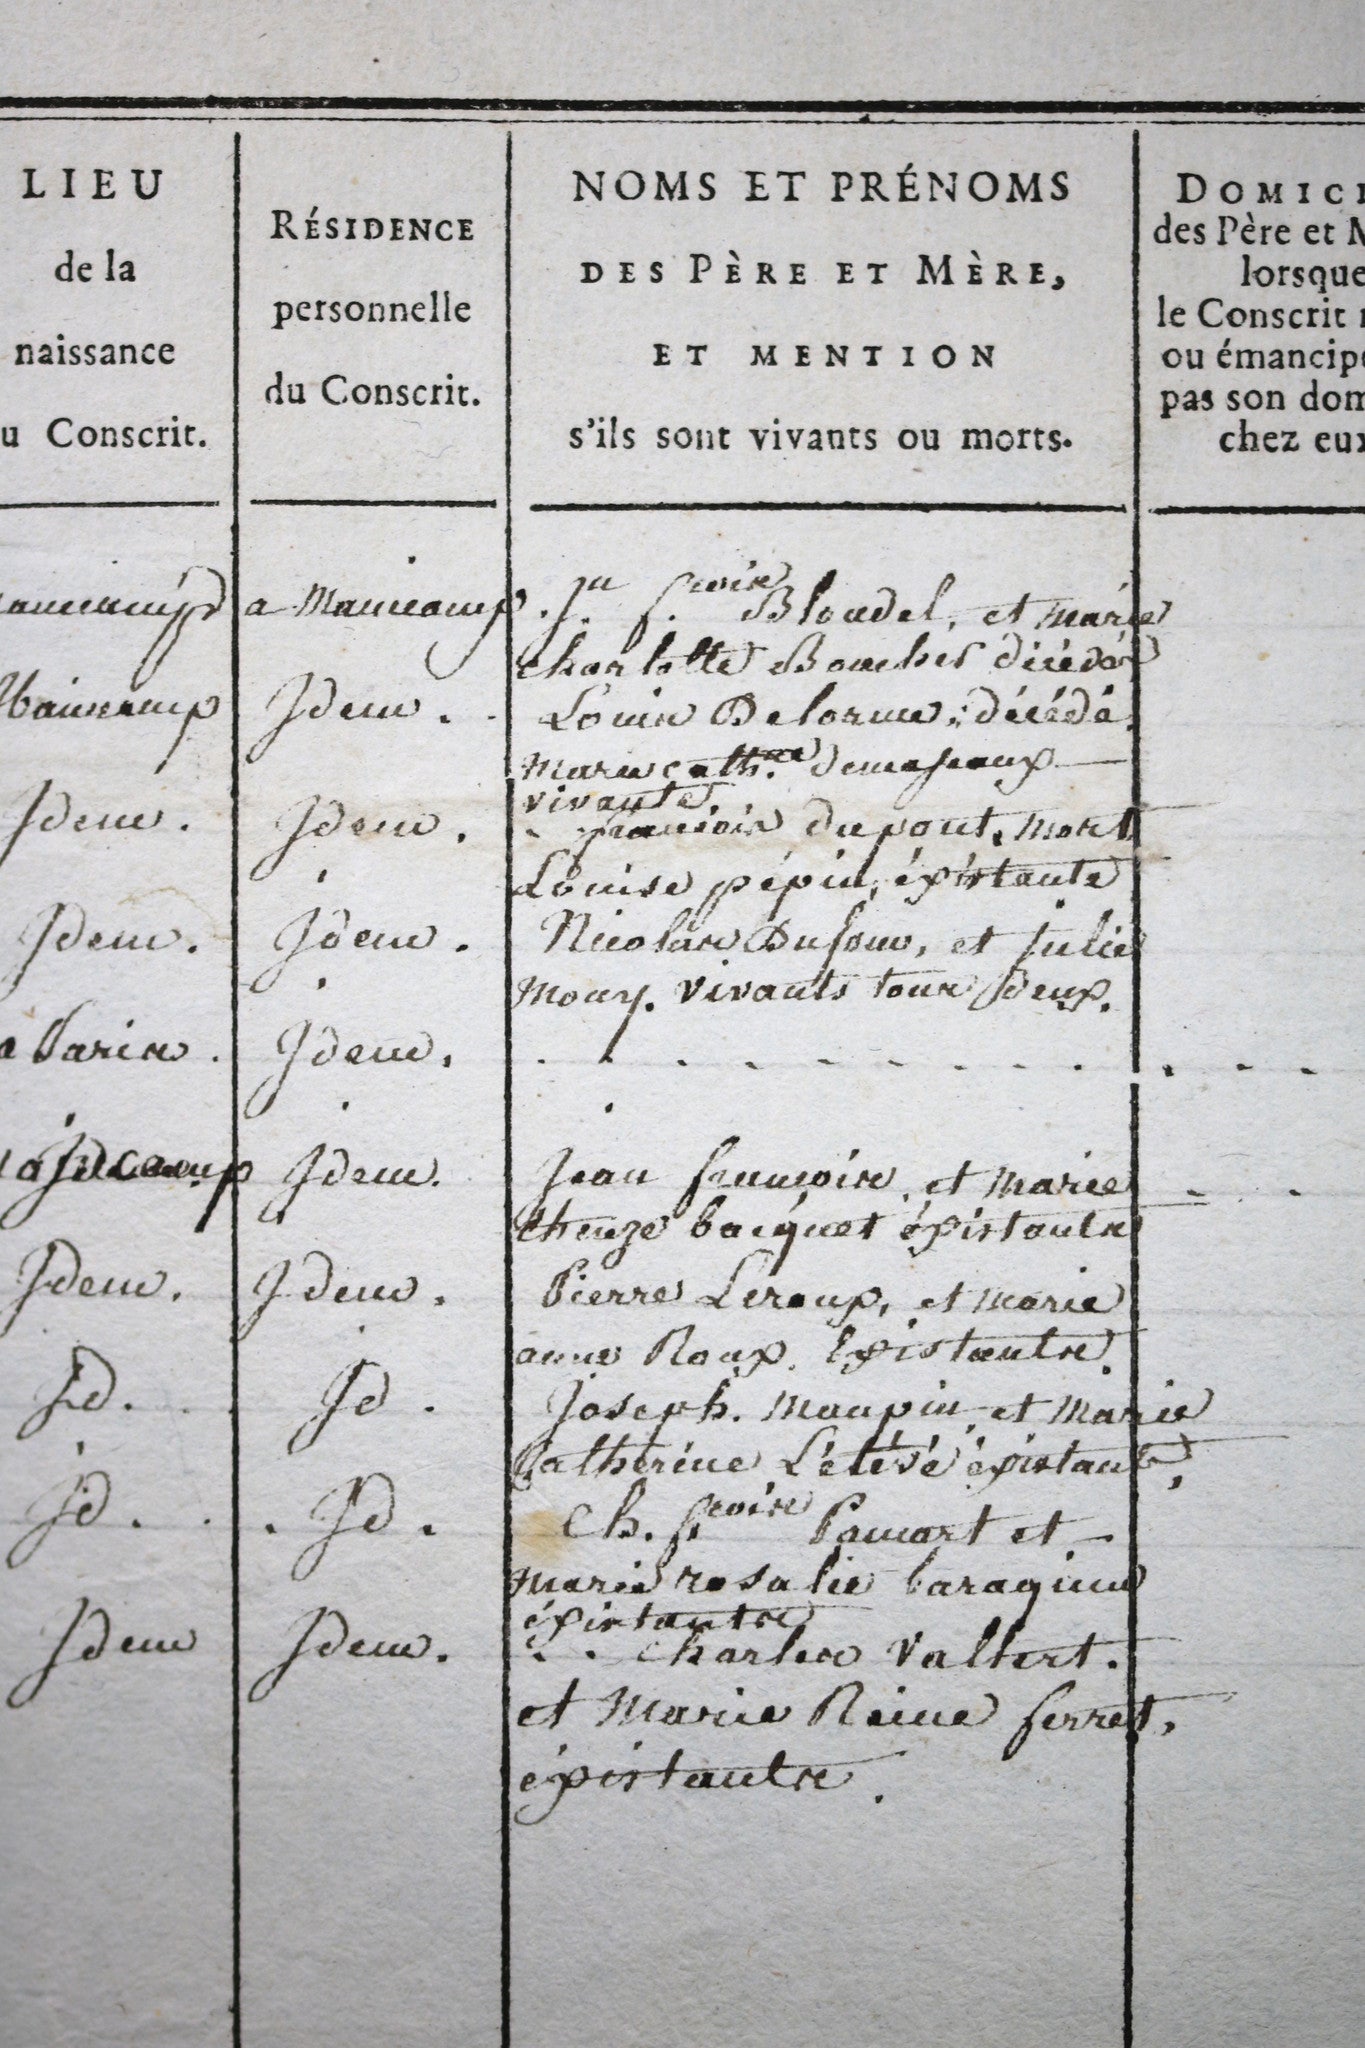 LIEU
de la
naissance
u Conscrit.
RÉSIDENCE
personnelle
du Conscrit.
NOMS ET PRÉNOMS
DES PÈRE ET MÈRE,
ET MENTION
s'ils sont vivants ou morts.
DOMICI
des Père et M
lorsque
le Conscrit
ou émancip
pas son dom
chez eux
a Manicamp
Jn. f.coise Blondel, et marie
charlotte Boucher
Manicamp
Idem.
Louis Delorme, décédé
marie cath.ne
vivante.
Idem.
Idem.
francois dupont, mort
Louise pépin, éxistante
Idem.
Idem.
Nicolas Dufour, et Julie
mouy. vivants tous deux.
a Paris.
Idem.
Idem.
Jean francois, et marie
bacquet éxistants
Idem.
Idem.
Pierre Leroux, et marie
anne Roux. Existants.
Id.
Id.
Joseph. maupin, et marie
Catherine L'élevé éxistants,
Id.
Id.
Ch. f.cois Pamart et
marie rosalie baragin
éxistants
Idem
Idem.
Charles Valtert.
et Marie Reine ferret,
éxistants.